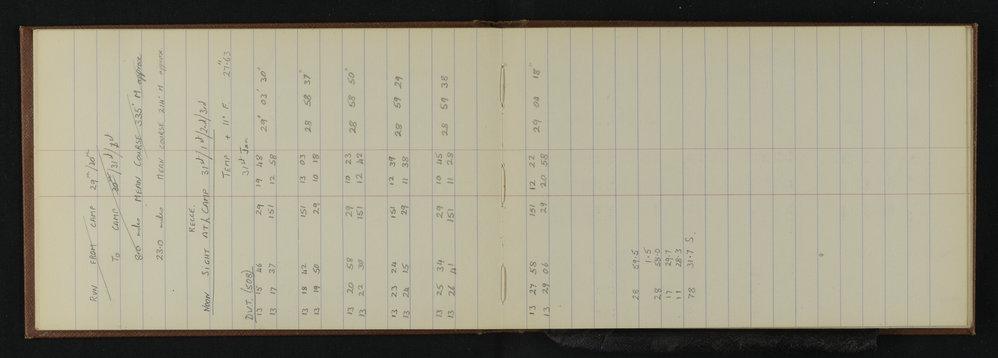 RUN FROM CAMP 29th/30th
TO CAMP 30th/31st/
8.0 miles MEAN COURSE 335° M approx
23.0 miles MEAN COURSE 214° M approx
RECCE
NOON SIGHT AT CAMP 31st/1st/2nd/3rd
TEMP + 11° F. 27.63"
DWT. (508) 31st Jan
13 15 46 29 19 48 29° 03' 30"
13 17 37 151 12 58
13 18 42 151 13 03 28 58 37"
13 19 50 29 10 18
13 20 58 29 10 23 28 58 50"
13 22 30 151 12 42
13 23 24 151 12 39 28 59 29
13 24 15 29 11 38
13 25 34 29 10 45 28 59 38
13 26 41 151 11 28
13 27 58 151 12 22 29 00 18"
13 29 06 29 20 58
28 59.5
1.5
28 58.0
17 29.7
11 28.3
78 31.7 S.